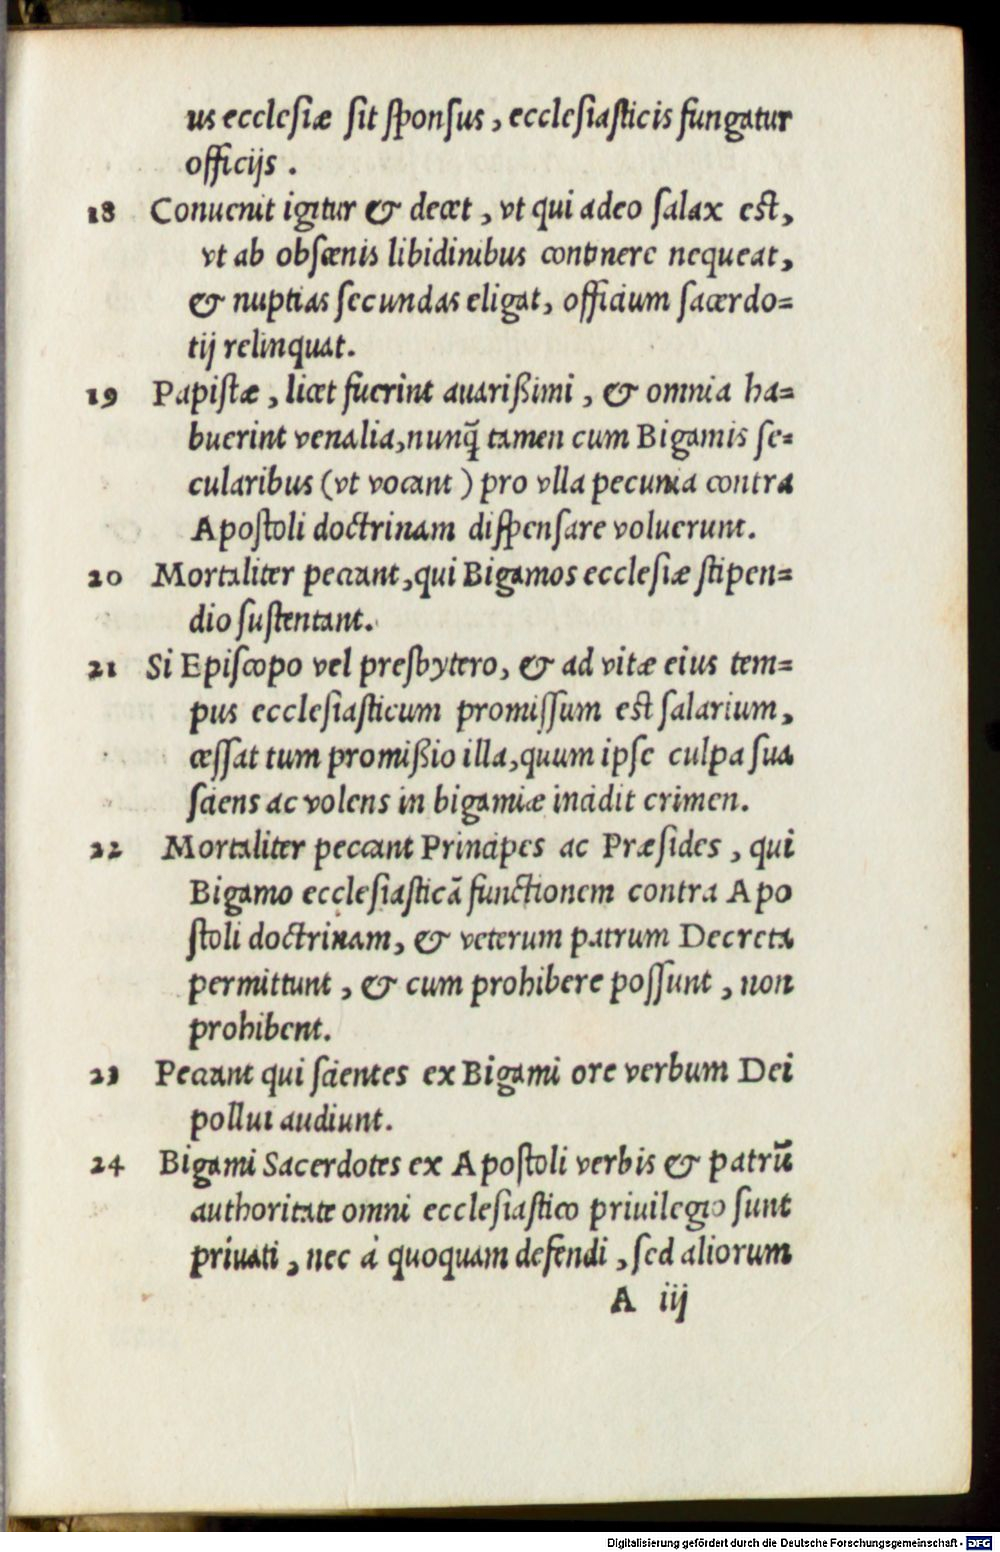 us ecclesiæ sit sponsus, ecclesiasticis fungatur
officijs.
18 Conuenit igitur & decet, vt qui adeo salax est,
vt ab obscœnis libidinibus continere nequeat,
& nuptias secundas eligat, officium sacerdo=
tij relinquat.
19 Papistæ, licet fuerint auarißimi, & omnia ha=
buerint venalia, nunq̃ tamen cum Bigamis se=
cularibus (vt vocant) pro vlla pecunia contra
Apostoli doctrinam dispensare voluerunt.
20 Mortaliter peccant, qui Bigamos ecclesiæ stipen=
dio sustentant.
21 Si Episcopo vel presbytero, & ad vitæ eius tem=
pus ecclesiasticum promissum est salarium,
cessat tum promißio illa, quum ipse culpa sua
sciens ac volens in bigamiæ incidit crimen.
22 Mortaliter peccant Principes ac Præsides, qui
Bigamo ecclesiasticã functionem contra Apo
stoli doctrinam, & veterum patrum Decreta
permittunt, & cum prohibere possunt, non
prohibent.
23 Peccant qui scientes ex Bigami ore verbum Dei
pollui audiunt.
24 Bigami Sacerdotes ex Apostoli verbis & patrũ
authoritate omni ecclesiastico priuilegio sunt
priuati, nec à quoquam defendi, sed aliorum
A iij
Digitalisierung gefördert durch die Deutsche Forschungsgemeinschaft - DFG